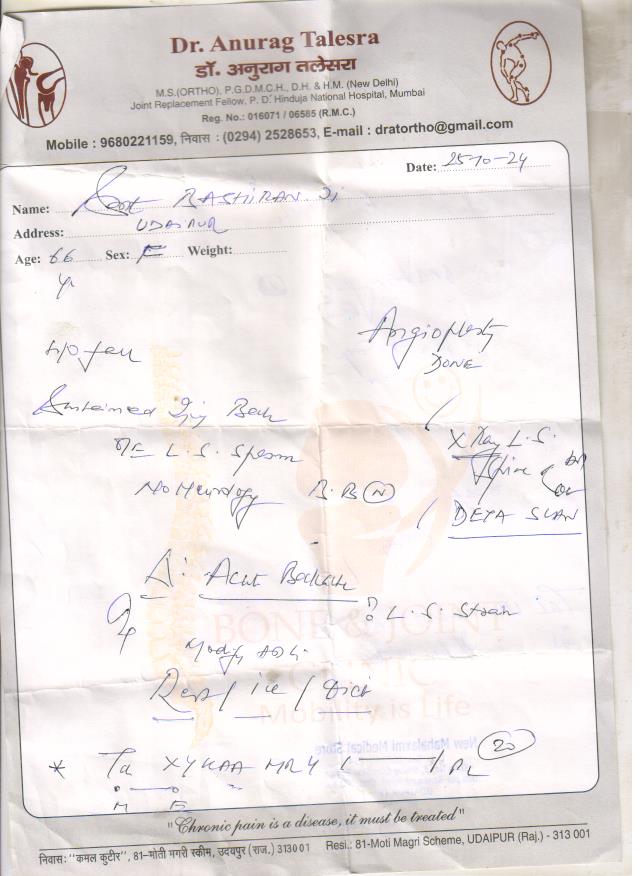 Dr. Anurag Talesra
डॉ. अनुराग तलेसरा
M.S.(ORTHO), P.G.D.M.C.H., D.H. & H.M. (New Delhi)
Joint Replacement Fellow, P. D. Hinduja National Hospital, Mumbai
Reg. No.: 016071 / 06585 (R.M.C.)
Mobile : 9680221159, निवास : (0294) 2528653, E-mail : dratortho@gmail.com
Date: 25-10-24
Name:
Address: UDAIPUR
Age: 66 Sex: F Weight:
yr
H/O fall
Angioplasty
DONE
Sustained Injury Back
O/E L.S. Spasm
X Ray L.S.
Spine
No Neurology B.B (N)
DEXA SCAN
A: Acute Backache
? L.S. Strain
BONE & JOINT
CLINIC
Mobility is Life
Modify ADL
Rest / ice / Diet
New Mahalaxmi Medical Store
* Ta XYKAA MR 4 (20)
M E
"Chronic pain is a disease, it must be treated"
निवास: "कमल कुटीर", 81-मोती मगरी स्कीम, उदयपुर (राज.) 313001 Resi.: 81-Moti Magri Scheme, UDAIPUR (Raj.) - 313 001